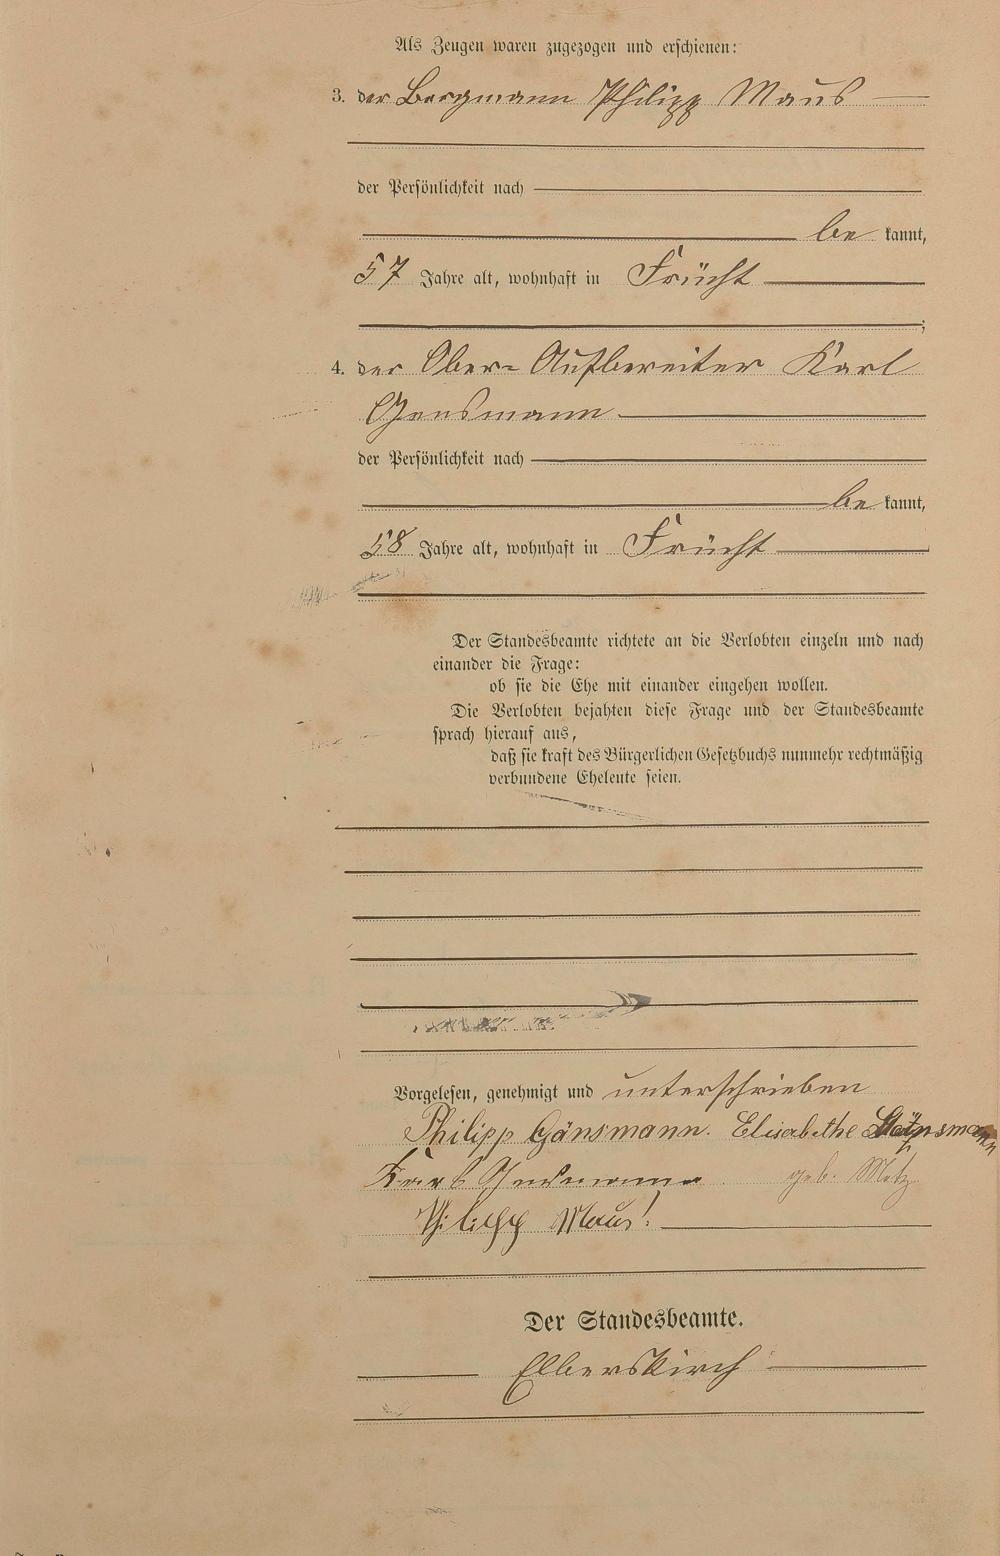 Als Zeugen waren zugezogen und erschienen:
3. der Bergmann Philipp Maus
der Persönlichkeit nach
be kannt,
57 Jahre alt, wohnhaft in Frücht
;
4. der Ober-Aufbereiter Karl
Gensmann
der Persönlichkeit nach
be kannt,
58 Jahre alt, wohnhaft in Frücht
Der Standesbeamte richtete an die Verlobten einzeln und nach
einander die Frage:
ob sie die Ehe mit einander eingehen wollen.
Die Verlobten bejahten diese Frage und der Standesbeamte
sprach hierauf aus,
daß sie kraft des Bürgerlichen Gesetzbuchs nunmehr rechtmäßig
verbundene Eheleute seien.
Vorgelesen, genehmigt und unterschrieben
Philipp Gänsmann. Elisabethe Gänsmann
Karl Gensmann geb. Metz
Philipp Maus!
Der Standesbeamte.
Elberskirch